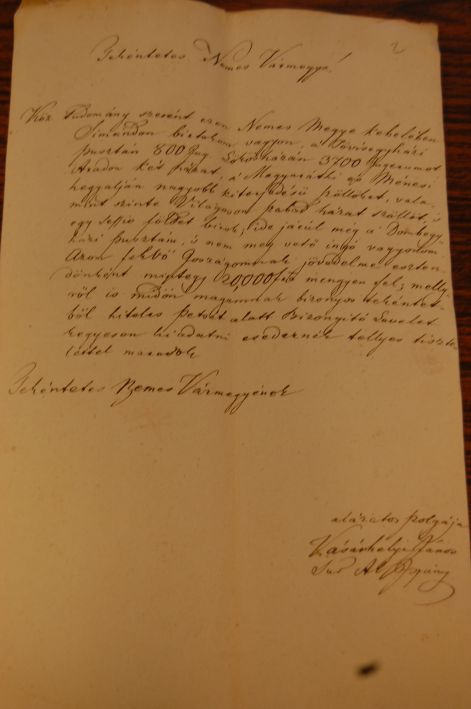 2
Tekéntetes Nemes Vármegye!
Köz Tudomány szerént ezen Nemes Megye kebelében
Simándon birtokom vagyon, a
pusztán 800 3700
Aradon két házat, a Magyaráthi és Ménesi
hegyalján nagyobb kiterjedésü szöllöket, vala-
mint szinte Világoson szabad házat szöllöt, s
egy sessio földet birok, ide járúl még a Dombegy-
házi pusztám, s nem meg vető ingó vagyonom
Azon fekvő Joszágomnak jövedelme eszten-
dönként mintegy 20,000 mengyen fel, melly-
ről is midőn magamnak bizonyos tekéntet-
ből hiteles Petsét alatt Bizonyító Levelet
kegyesen ki adatni esedeznék tellyes tiszte-
lettel maradok
Tekéntetes Nemes Vármegyének
alázatos szolgája
Vásárhelyi János